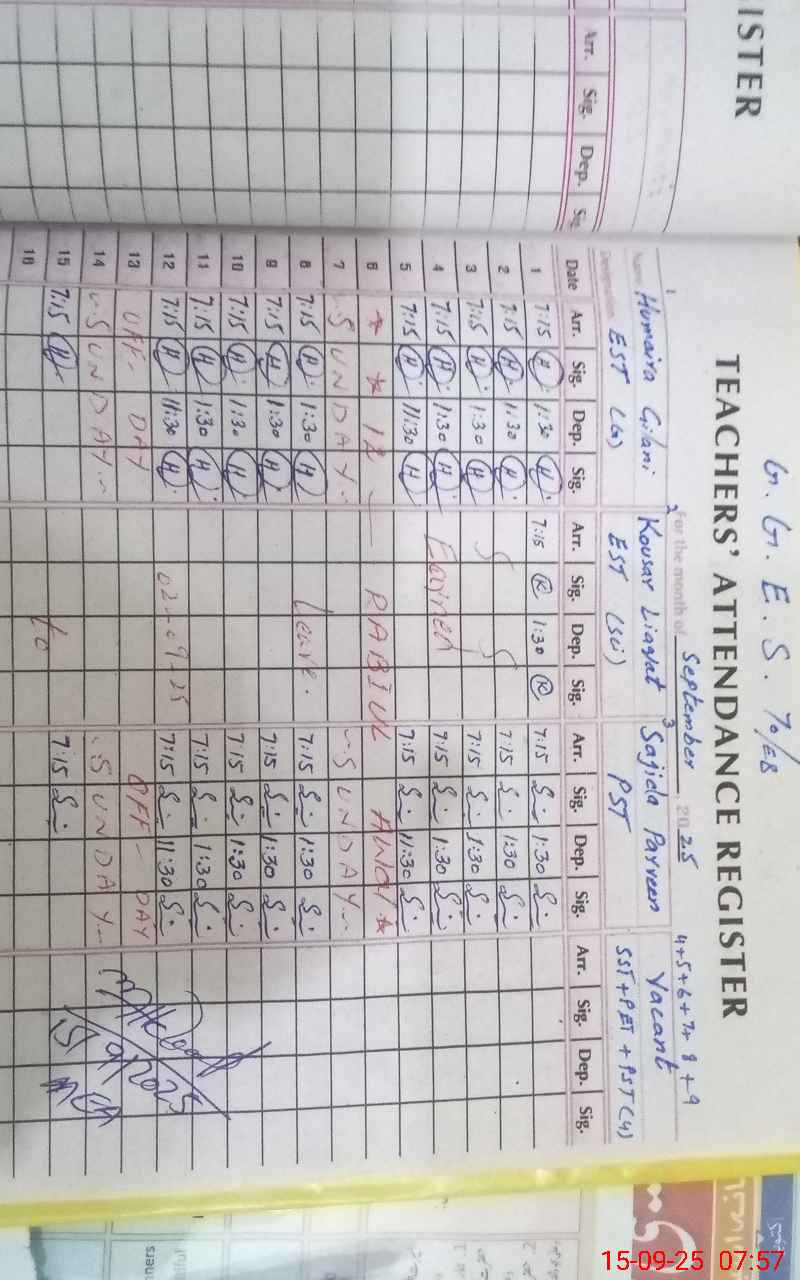 ISTER
Arr. Sig. Dep. Sig
G. G. E. S. 70/EB
TEACHERS' ATTENDANCE REGISTER
For the month of September 2025
1 2 3 4+5+6+7+8+9
Name Humaira Gilani Kousar Liaqat Sajida Parveen Vacant
Designation EST (G) EST (Sci) PST SST+PET+PST(4)
Date Arr. Sig. Dep. Sig. Arr. Sig. Dep. Sig. Arr. Sig. Dep. Sig. Arr. Sig. Dep. Sig.
1 7:15 H 1:30 H 7:15 K 1:30 K 7:15 S 1:30 S
2 7:15 H 1:30 H 7:15 S 1:30 S
3 7:15 H 1:30 H 7:15 S 1:30 S
4 7:15 H 1:30 H 7:15 S 1:30 S
5 7:15 H 11:30 H 7:15 S 11:30 S
6 12 RABIUL AWAL
7 SUNDAY SUNDAY
8 7:15 H 1:30 H Leave. 7:15 S 1:30 S
9 7:15 H 1:30 H 7:15 S 1:30 S
10 7:15 H 1:30 H 7:15 S 1:30 S
11 7:15 H 1:30 H 7:15 S 1:30 S
12 7:15 H 11:30 H 02-09-25 7:15 S 11:30 S
13 OFF-DAY OFF-DAY
14 SUNDAY SUNDAY
15 7:15 H to 7:15 S
16
15/9/2025
MEA
15-09-25 07:57